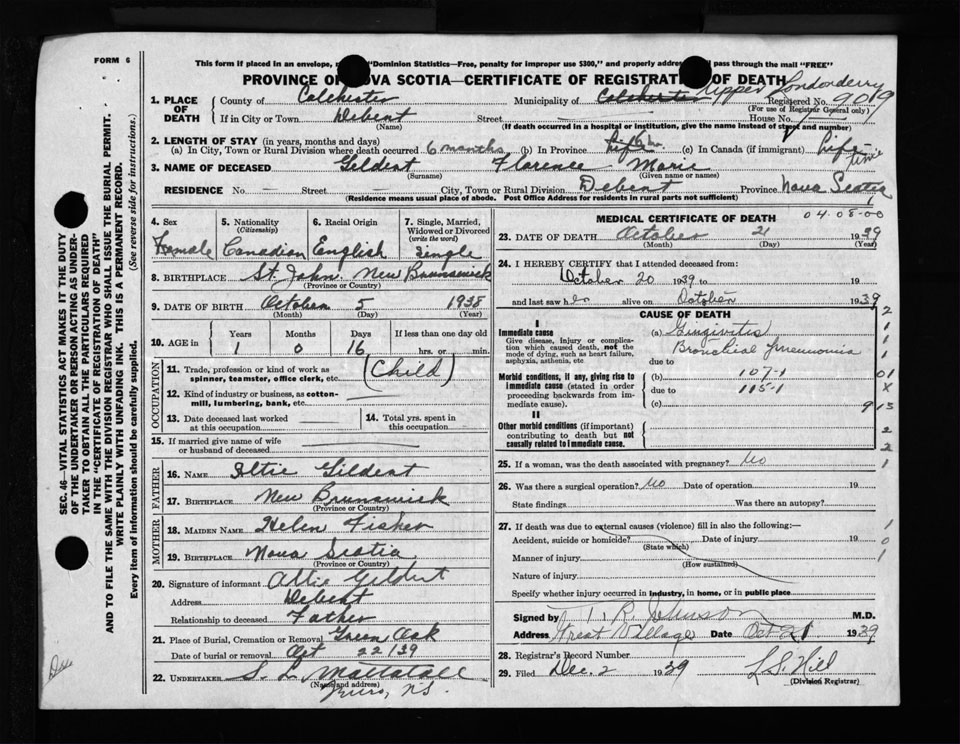 FORM 6
This form if placed in an envelope, "Dominion Statistics—Free, penalty for improper use $300," and properly address pass through the mail "FREE"
PROVINCE OF NOVA SCOTIA—CERTIFICATE OF REGISTRATION OF DEATH
1. PLACE OF DEATH County of Colchester Municipality of Colchester Upper Londonderry
Registered No. 9019
(For use of Registrar General only)
If in City or Town Debert Street House No.
(Name) (If death occurred in a hospital or institution, give the name instead of street and number)
2. LENGTH OF STAY (in years, months and days)
(a) In City, Town or Rural Division where death occurred 6 months (b) In Province (c) In Canada (if immigrant) Life time
3. NAME OF DECEASED Geldert Florence Marie
(Surname) (Given name or names)
RESIDENCE No. Street City, Town or Rural Division Debert Province Nova Scotia
(Residence means usual place of abode. Post Office Address for residents in rural parts not sufficient)
4. Sex 5. Nationality (Citizenship) 6. Racial Origin 7. Single, Married, Widowed or Divorced (write the word)
Female Canadian English Single
8. BIRTHPLACE St. John New Brunswick
(Province or Country)
9. DATE OF BIRTH October 5 1938
(Month) (Day) (Year)
10. AGE in Years Months Days If less than one day old
1 0 16 hrs. or min.
OCCUPATION
11. Trade, profession or kind of work as spinner, teamster, office clerk, etc. (Child)
12. Kind of industry or business, as cotton-mill, lumbering, bank, etc.
13. Date deceased last worked at this occupation 14. Total yrs. spent in this occupation
15. If married give name of wife or husband of deceased
FATHER
16. NAME Geldert
17. BIRTHPLACE New Brunswick
(Province or Country)
MOTHER
18. MAIDEN NAME Helen Fisher
19. BIRTHPLACE Nova Scotia
(Province or Country)
20. Signature of informant Geldert
Address Debert
Relationship to deceased Father
21. Place of Burial, Cremation or Removal Green Oak
Date of burial or removal Oct 22/39
22. UNDERTAKER S. L. Mattatall
(Name and address)
Truro, N.S.
MEDICAL CERTIFICATE OF DEATH
04.08.00
23. DATE OF DEATH October 21 1939
(Month) (Day) (Year)
24. I HEREBY CERTIFY that I attended deceased from:
October 20 1939
and last saw her alive on October 1939
CAUSE OF DEATH
I
Immediate cause (a) Gingivitis
Give disease, injury or complication which caused death, not the mode of dying, such as heart failure, asphyxia, asthenia, etc. Bronchial Pneumonia
due to
Morbid conditions, if any, giving rise to immediate cause (stated in order proceeding backwards from immediate cause). (b) 107-1
due to 115-1
(c) 913
II
Other morbid conditions (if important) contributing to death but not causally related to immediate cause.
25. If a woman, was the death associated with pregnancy? No
26. Was there a surgical operation? No Date of operation 19
State findings Was there an autopsy?
27. If death was due to external causes (violence) fill in also the following:—
Accident, suicide or homicide? Date of injury 19
(State which)
Manner of injury
(How sustained)
Nature of injury
Specify whether injury occurred in industry, in home, or in public place
Signed by T. R. Johnson M.D.
Address Great Village Date Oct 21 1939
28. Registrar's Record Number
29. Filed Dec. 2 1939 L. S. Hill
(Division Registrar)
SEC. 46—VITAL STATISTICS ACT MAKES IT THE DUTY
OF THE UNDERTAKER OR PERSON ACTING AS UNDER-
TAKER TO OBTAIN ALL THE PARTICULARS REQUIRED
IN THE "CERTIFICATE OF REGISTRATION OF DEATH"
AND TO FILE THE SAME WITH THE DIVISION REGISTRAR WHO SHALL ISSUE THE BURIAL PERMIT.
WRITE PLAINLY WITH UNFADING INK. THIS IS A PERMANENT RECORD.
Every item of information should be carefully supplied. (See reverse side for instructions.)